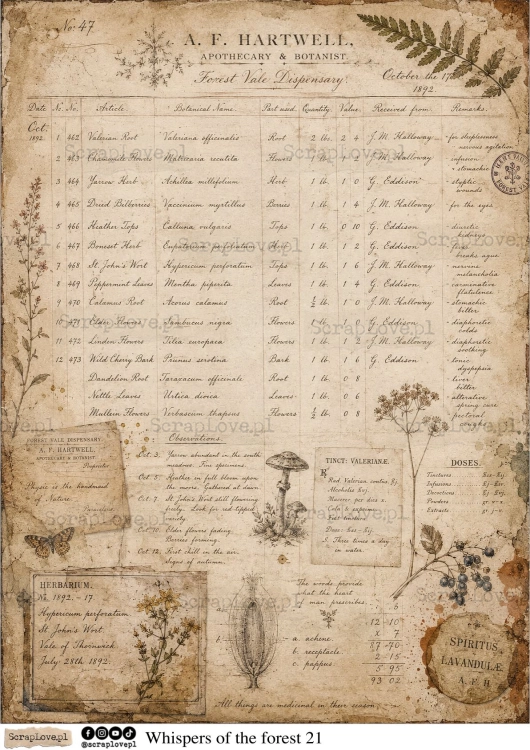 No. 47
A. F. HARTWELL,
APOTHECARY & BOTANIST.
Forest Vale Dispensary.
October the 17
1892.
Date No. No. Article Botanical Name. Part used. Quantity. Value. Received from. Remarks.
Oct.
1892. 1 462 Valerian Root Valeriana officinalis Root 2 lb. 2 4 J. M. Halloway for sleeplessness
nervous agitation
2 463 Chamomile Flowers Matricaria recutita Flowers 1 lb. 1 2 J. M. Halloway infusion
stomachic
3 464 Yarrow Herb Achillea millefolium Herb 1 lb. 1 0 G. Eddison styptic
wounds
4 465 Dried Bilberries Vaccinium myrtillus Berries 1 lb. 1 4 J. M. Halloway for the eyes.
5 466 Heather Tops Calluna vulgaris Tops 1 lb. 0 10 G. Eddison diuretic
kidney
6 467 Boneset Herb Eupatorium perfoliatum 1 lb. 1 2 G. Eddison
breaks ague
7 468 St. John's Wort Hypericum perforatum Tops 1 lb. 1 6 J. M. Halloway nervine
melancholia
8 469 Peppermint Leaves Mentha piperita Leaves 1 lb. 1 4 G. Eddison carminative
flatulence
9 470 Calamus Root Acorus calamus Root ½ lb. 1 0 J. M. Halloway stomachic
bitter
10 471 Elder Flowers Sambucus nigra Flowers G. Eddison diaphoretic
colds
11 472 Linden Flowers Tilia europaea Flowers 1 lb. 1 2 J. M. Halloway diaphoretic
soothing
12 473 Wild Cherry Bark Prunus serotina Bark 1 lb. 1 6 G. Eddison tonic
dyspepsia
Dandelion Root Taraxacum officinale Root 1 lb. 0 8 liver
bitter
Nettle Leaves Urtica dioica Leaves 1 lb. 0 6 alterative
spring cure
Mullein Flowers Verbascum thapsus Flowers ½ lb. 0 8 pectoral
FOREST VALE DISPENSARY
A. F. HARTWELL,
APOTHECARY & BOTANIST
Proprietor
Physic is the handmaid
of Nature
Observations.
Oct. 2. Yarrow abundant in the south
meadow. Fine specimens.
Oct. 5. Heather in full bloom upon
the moor. Gathered at dawn.
Oct. 7. St. John's Wort still flowering
freely. Look for red-tipped
variety.
Oct. 10. Elder flowers fading.
Berries forming.
Oct. 12. First chill in the air.
Signs of autumn.
TINCT: VALERIANÆ.
Rad. Valerian
Alcoholis
Dose:
3 Three times a day
in water.
DOSES.
Tinctures
Infusions
Decoctions
Powders
Extracts
HERBARIUM.
No. 1892. - 17
Hypericum perforatum.
St. John's Wort.
Vale of Thornwick.
July 28th 1892.
a. achene.
b. receptacle.
c. pappus.
The woods provide
what the heart
of man prescribes.
6
12 - 10
x 7
87 - 70
2 - 15
5 95
93 02
SPIRITUS
LAVANDULÆ
A. F. H
All things are medicinal in their season.
ScrapLove.pl
@scraplovepl
Whispers of the forest 21